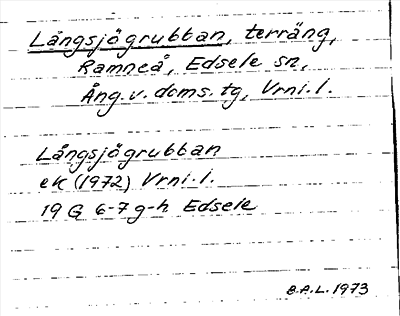 Långsjögrubban, terräng,
Ramneå, Edsele sn,
Ång.v. doms.tg, Vrni.l.
Långsjögrubban
ek (1972) Vrni.l.
19 G 6-7 g-h Edsele
B.A.L. 1973